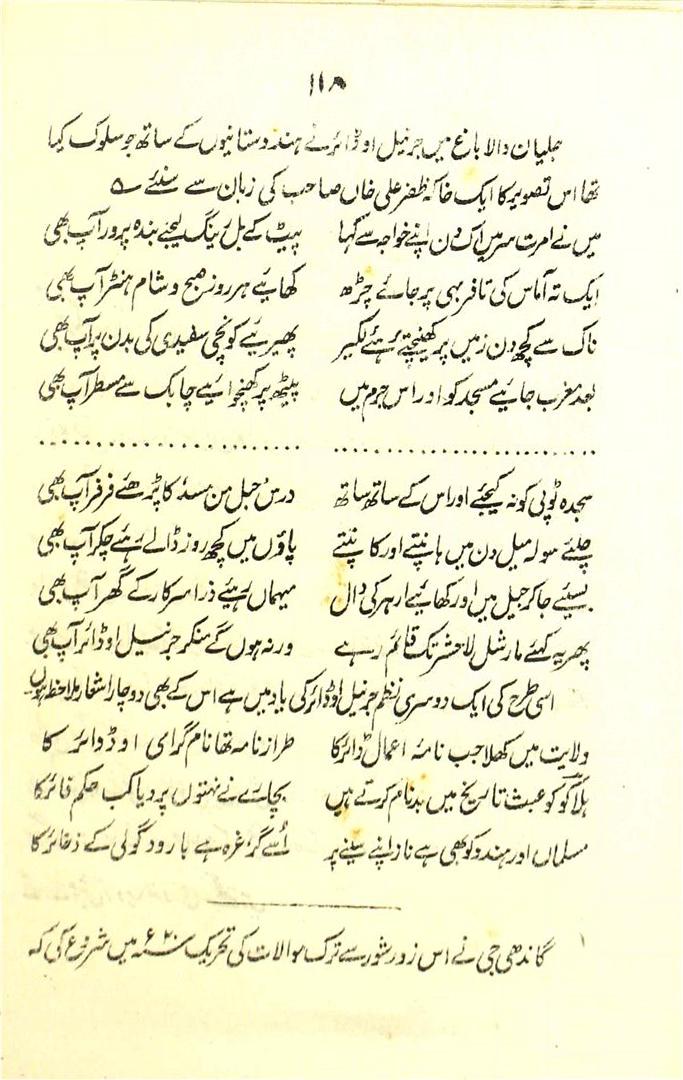 ۱۱۸
جلیان والا باغ میں جرنیل اوڈائر نے ہندوستانیوں کے ساتھ جو سلوک کیا
تھا اس تصویر کا ایک خاکہ ظفر علی خاں صاحب کی زبان سے سنئے ؎
میں نے امرت سر میں اک دن اپنے خواجہ سے کہا پیٹ کے بل رینگ لیجئے بندہ پرور آپ بھی
ایک تہ آماس کی تا فربہی پر جائے چڑھ کھائیے ہر روز صبح و شام ہنٹر آپ بھی
ناک سے کچھ دن زمیں پر کھینچتے رہئے لکیر پھیریے کونچی سفیدی کی بدن پر آپ بھی
بعد مغرب جائیے مسجد کو اور اس جرم میں پیٹھ پر کھنچوائیے چابک سے مسطر آپ بھی
سجدہ ٹوپی کو نہ کیجئے اور اس کے ساتھ ساتھ درس حبل من مسد کا پڑھئے فرفر آپ بھی
چلئے سولہ میل دن میں ہانپتے اور کانپتے پاؤں میں کچھ روز ڈالے رہئے چکر آپ بھی
بسئیے جا کر جیل میں اور کھائیے ارہر کی دال میہماں رہیئے ذرا سرکار کے گھر آپ بھی
پھر یہ کہئے مارشل لا حشر تک قائم رہے ورنہ ہوں گے منکر جرنیل اوڈائر آپ بھی
اسی طرح کی ایک دوسری نظم جرنیل اوڈائر کی یاد میں ہے اس کے بھی دو چار اشعار ملاحظہ ہوں
ولایت میں کھلا جب نامۂ اعمال ڈائر کا طراز نامہ تھا نام گرامی اوڈوائر کا
ہلاکو کو عبث تاریخ میں بدنام کرتے ہیں بچارے نے نہتوں پر دیا کب حکم فائر کا
مسلماں اور ہندو کو بھی ہے ناز اپنے سینے پر اُسے گر غرہ ہے بارود گولی کے ذخائر کا
گاندھی جی نے اس زور شور سے ترک موالات کی تحریک ۲۰ء میں شروع کی کہ